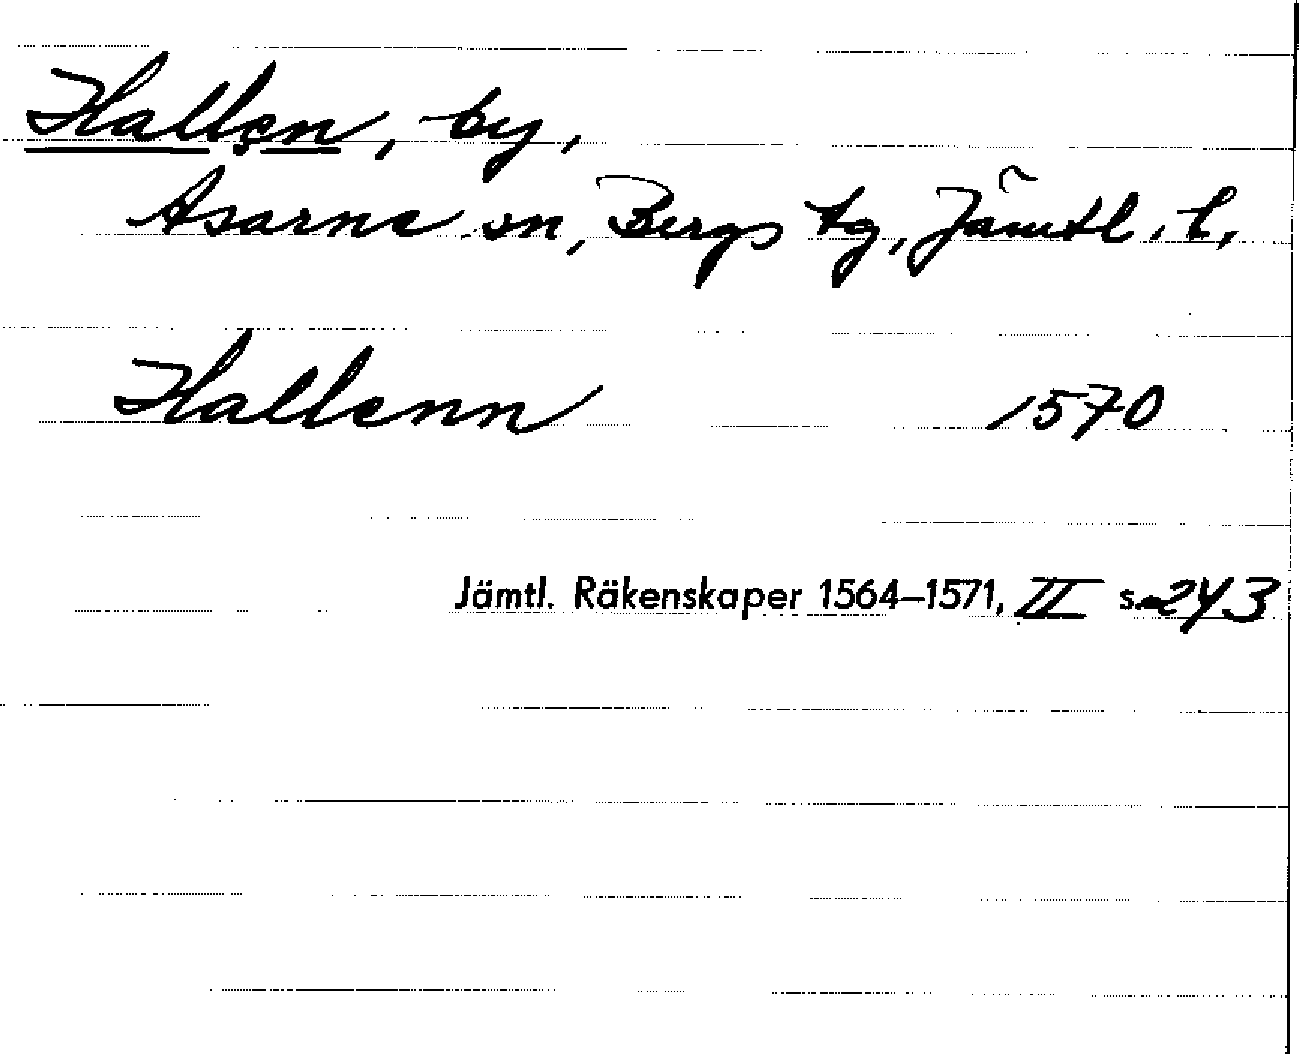 Hallen, by,
Asarne sn, Bergs tg, Jämtl. l.
Hallenn 1570
Jämtl. Räkenskaper 1564–1571, II s. 243